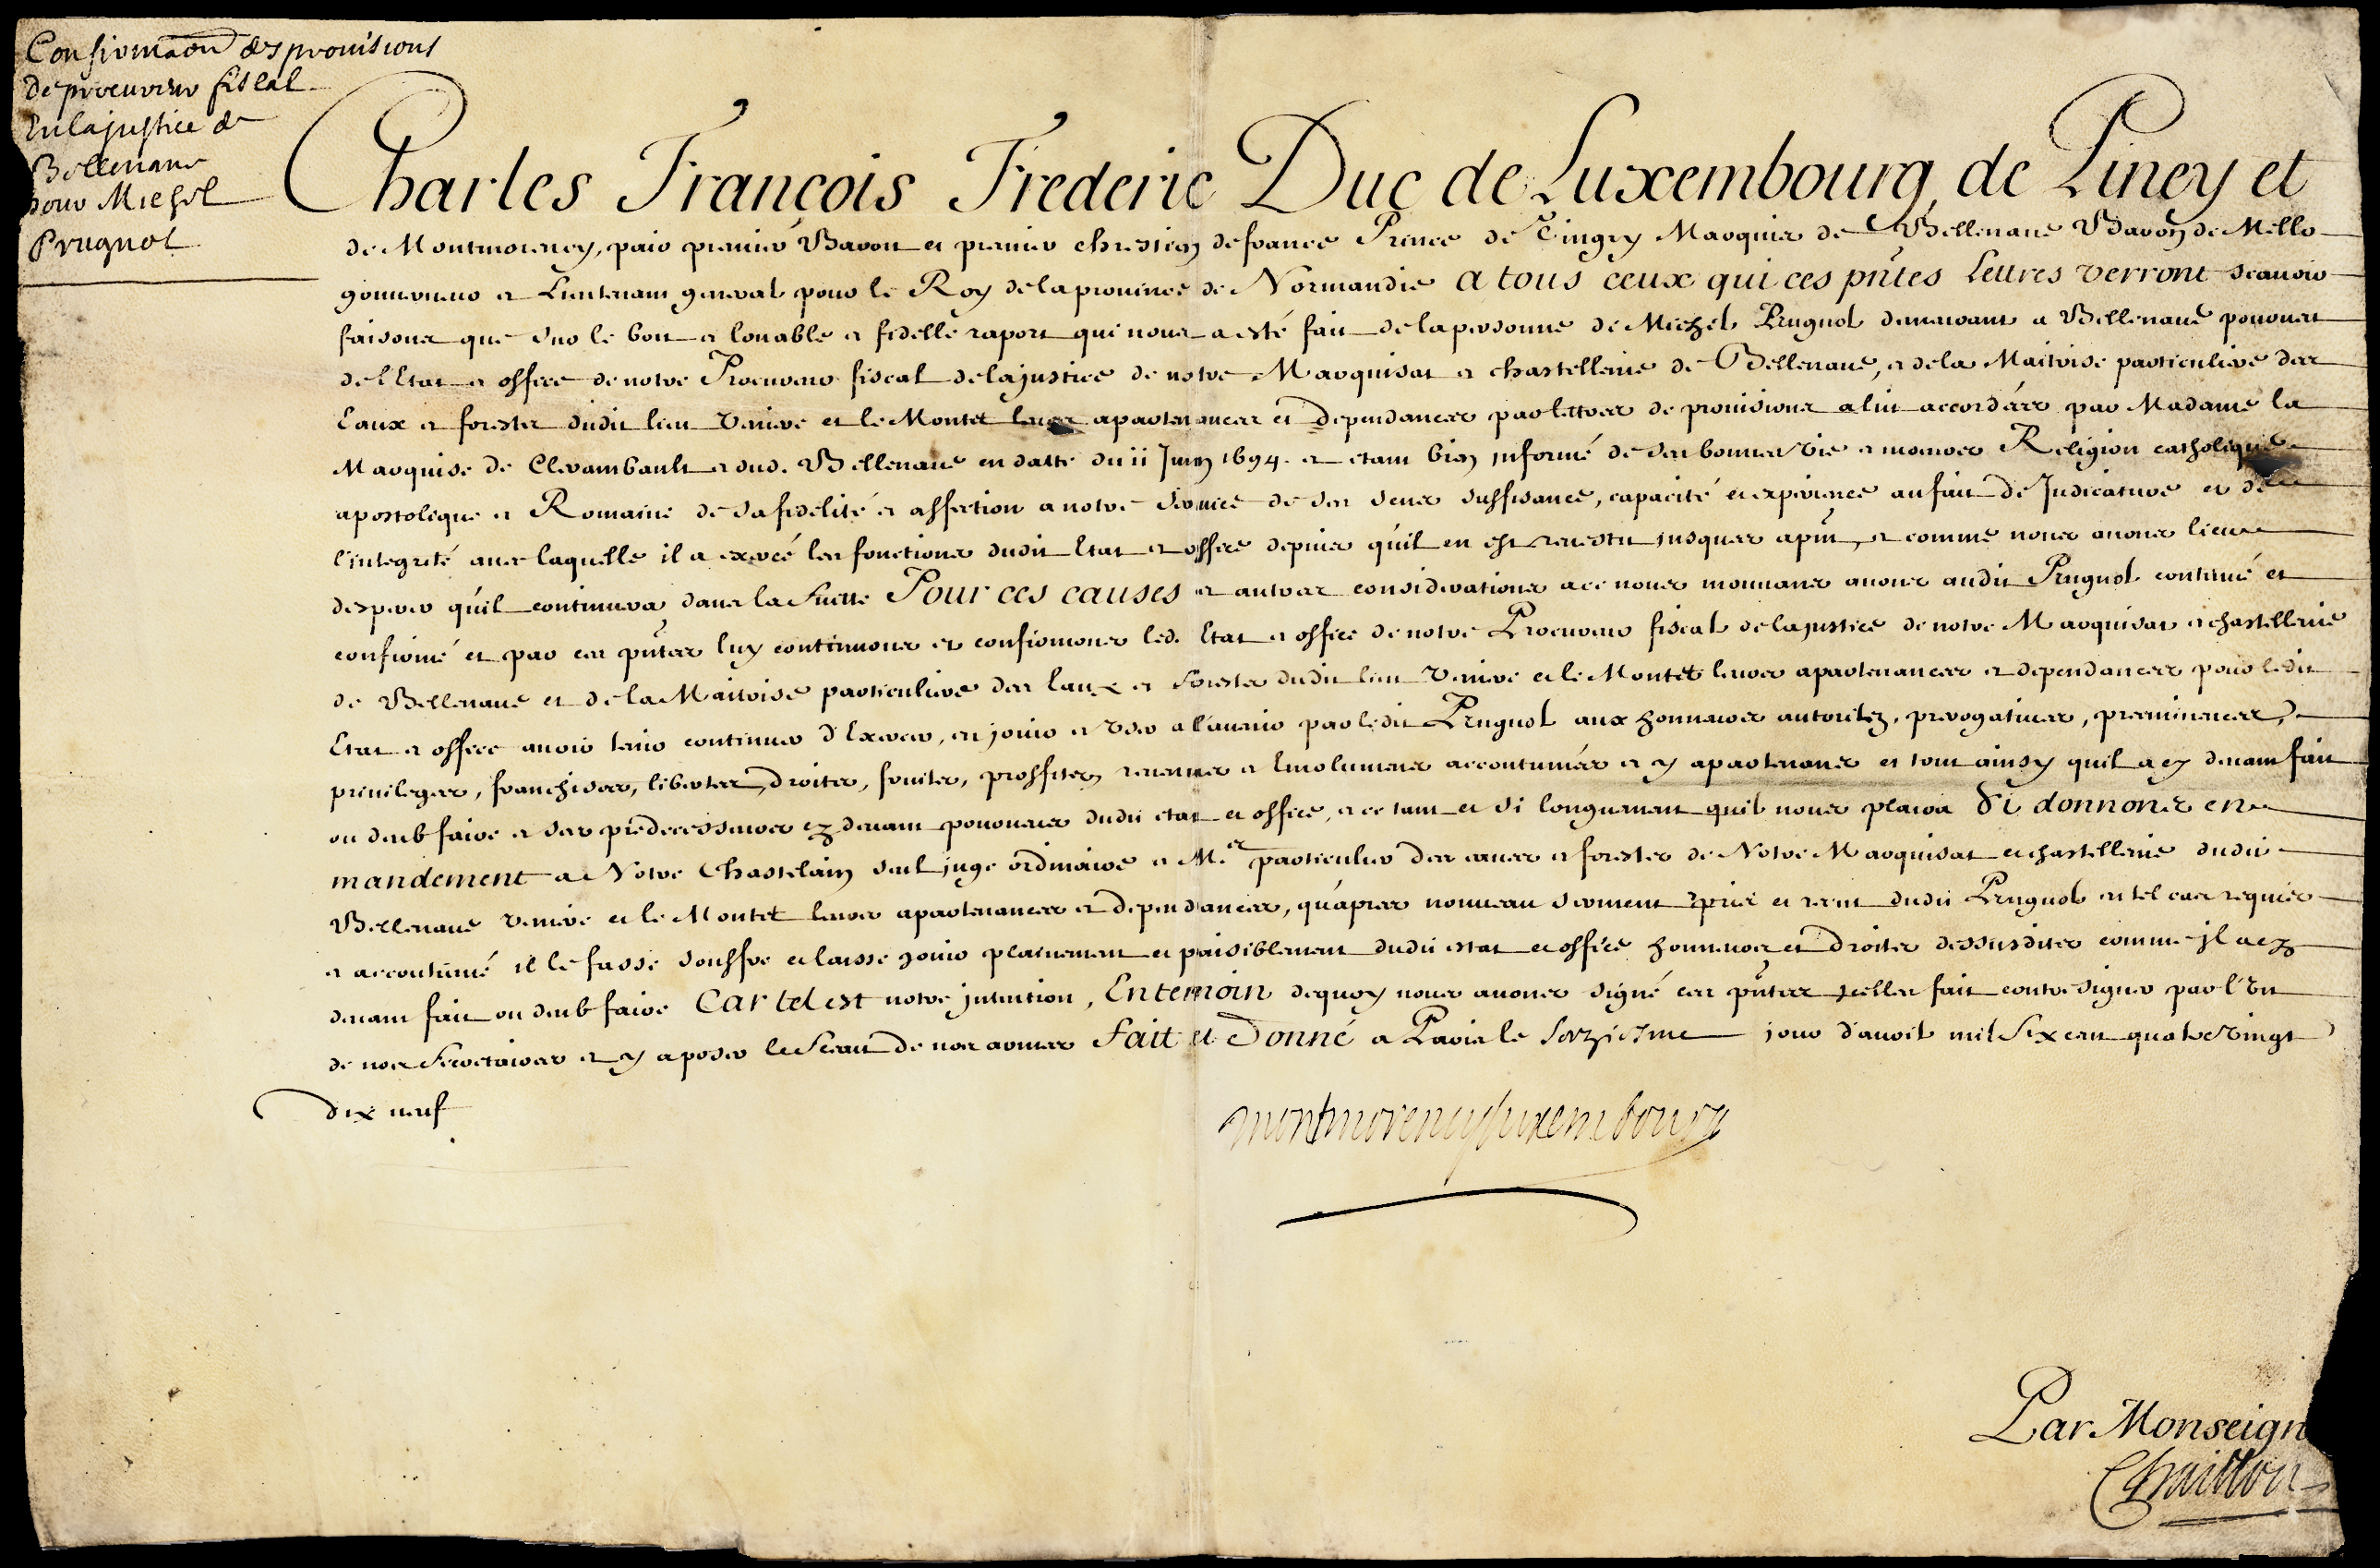 Confirmaon des provisions
de procureur fiscal
En la justice de
Bellenave
pour Michel
Prugnol
Charles François Frederic Duc de Luxembourg, de Piney et
de Montmorency, pair premier Baron et premier chrestien de france Prince de Tingry Marquis de Bellenave Baron de Mello
gouverneur et Lieutenant general pour le Roy de la province de Normandie A tous ceux qui ces pntes Lettres verront scavoir
faisons que sur le bon et louable et fidelle raport qui nous a esté fait de la personne de Michel Prugnol demeurant a Bellenave pourveu
de l'Etat et office de notre Procureur fiscal de la justice de notre Marquisat et chastellenie de Bellenave, et de la Maitrise particuliere des
Eaux et forests dudit lieu Veauve et le Montet leurs apartenances et dependances par lettres de provisions a lui accordées par Madame la
Marquise de Clerambault et dud. Bellenave en datte du 11 Juin 1694. et etant bien informé de ses bonnes vie et moeurs Religion catholique
apostolique et Romaine de sa fidelité et affection a notre service de ses sens suffisance, capacité et experience au fait de Judicature et de
l'integrité avec laquelle il a exercé les fonctions dudit Etat et office depuis qu'il en est revestu jusques a pnt, et comme nous avons lieu
desperer qu'il continuera dans la suitte Pour ces causes et autres considerations a ce nous mouvans avons audit Prugnol continué et
confirmé et par ces pntes luy continuons et confirmons led. Etat et office de notre Procureur fiscal de la justice de notre Marquisat et chastellenie
de Bellenave et de la Maitrise particuliere des Eaux et Forests dudit lieu Veauve et le Montet leurs apartenances et dependances pour ledit
Etat et office avoir tenir continuer d'Exercer, en jouir et user a l'avenir par ledit Prugnol aux honneurs autoritez, prerogatives, preeminences,
privileges, franchises, libertes, droits, fruits, proffits, revenus et Emolumens accoutumés et y apartenans et tout ainsy quil a cy devant fait
ou deub faire et ses predecesseurs cy devant pourveus dudit etat et office, et ce tant et si longuement quil nous plaira Si donnons en
mandement a Notre Chastelain seul juge ordinaire et M.er particulier des eaues et forests de Notre Marquisat et chastellenie dudit
Bellenave Veauve et le Montet leurs apartenances et dependances, qu'apres nouveau serment pris et receu dudit Prugnol en tel cas requis
et accoutumé il le fasse souffre et laisse jouir plainement et paisiblement dudit estat et office honneurs et droits dessusdits comme il a cy
devant fait ou deub faire Car tel est notre intention, En temoin dequoy nous avons signé ces pntes icelles fait contresigner par l'Un
de nos Secretaires et y aposer le Sceau de nos armes Fait et Donné a Paris le seizieme jour d'avril mil six cent quatre vingt
dix neuf
montmorency luxembourg
Par Monseign